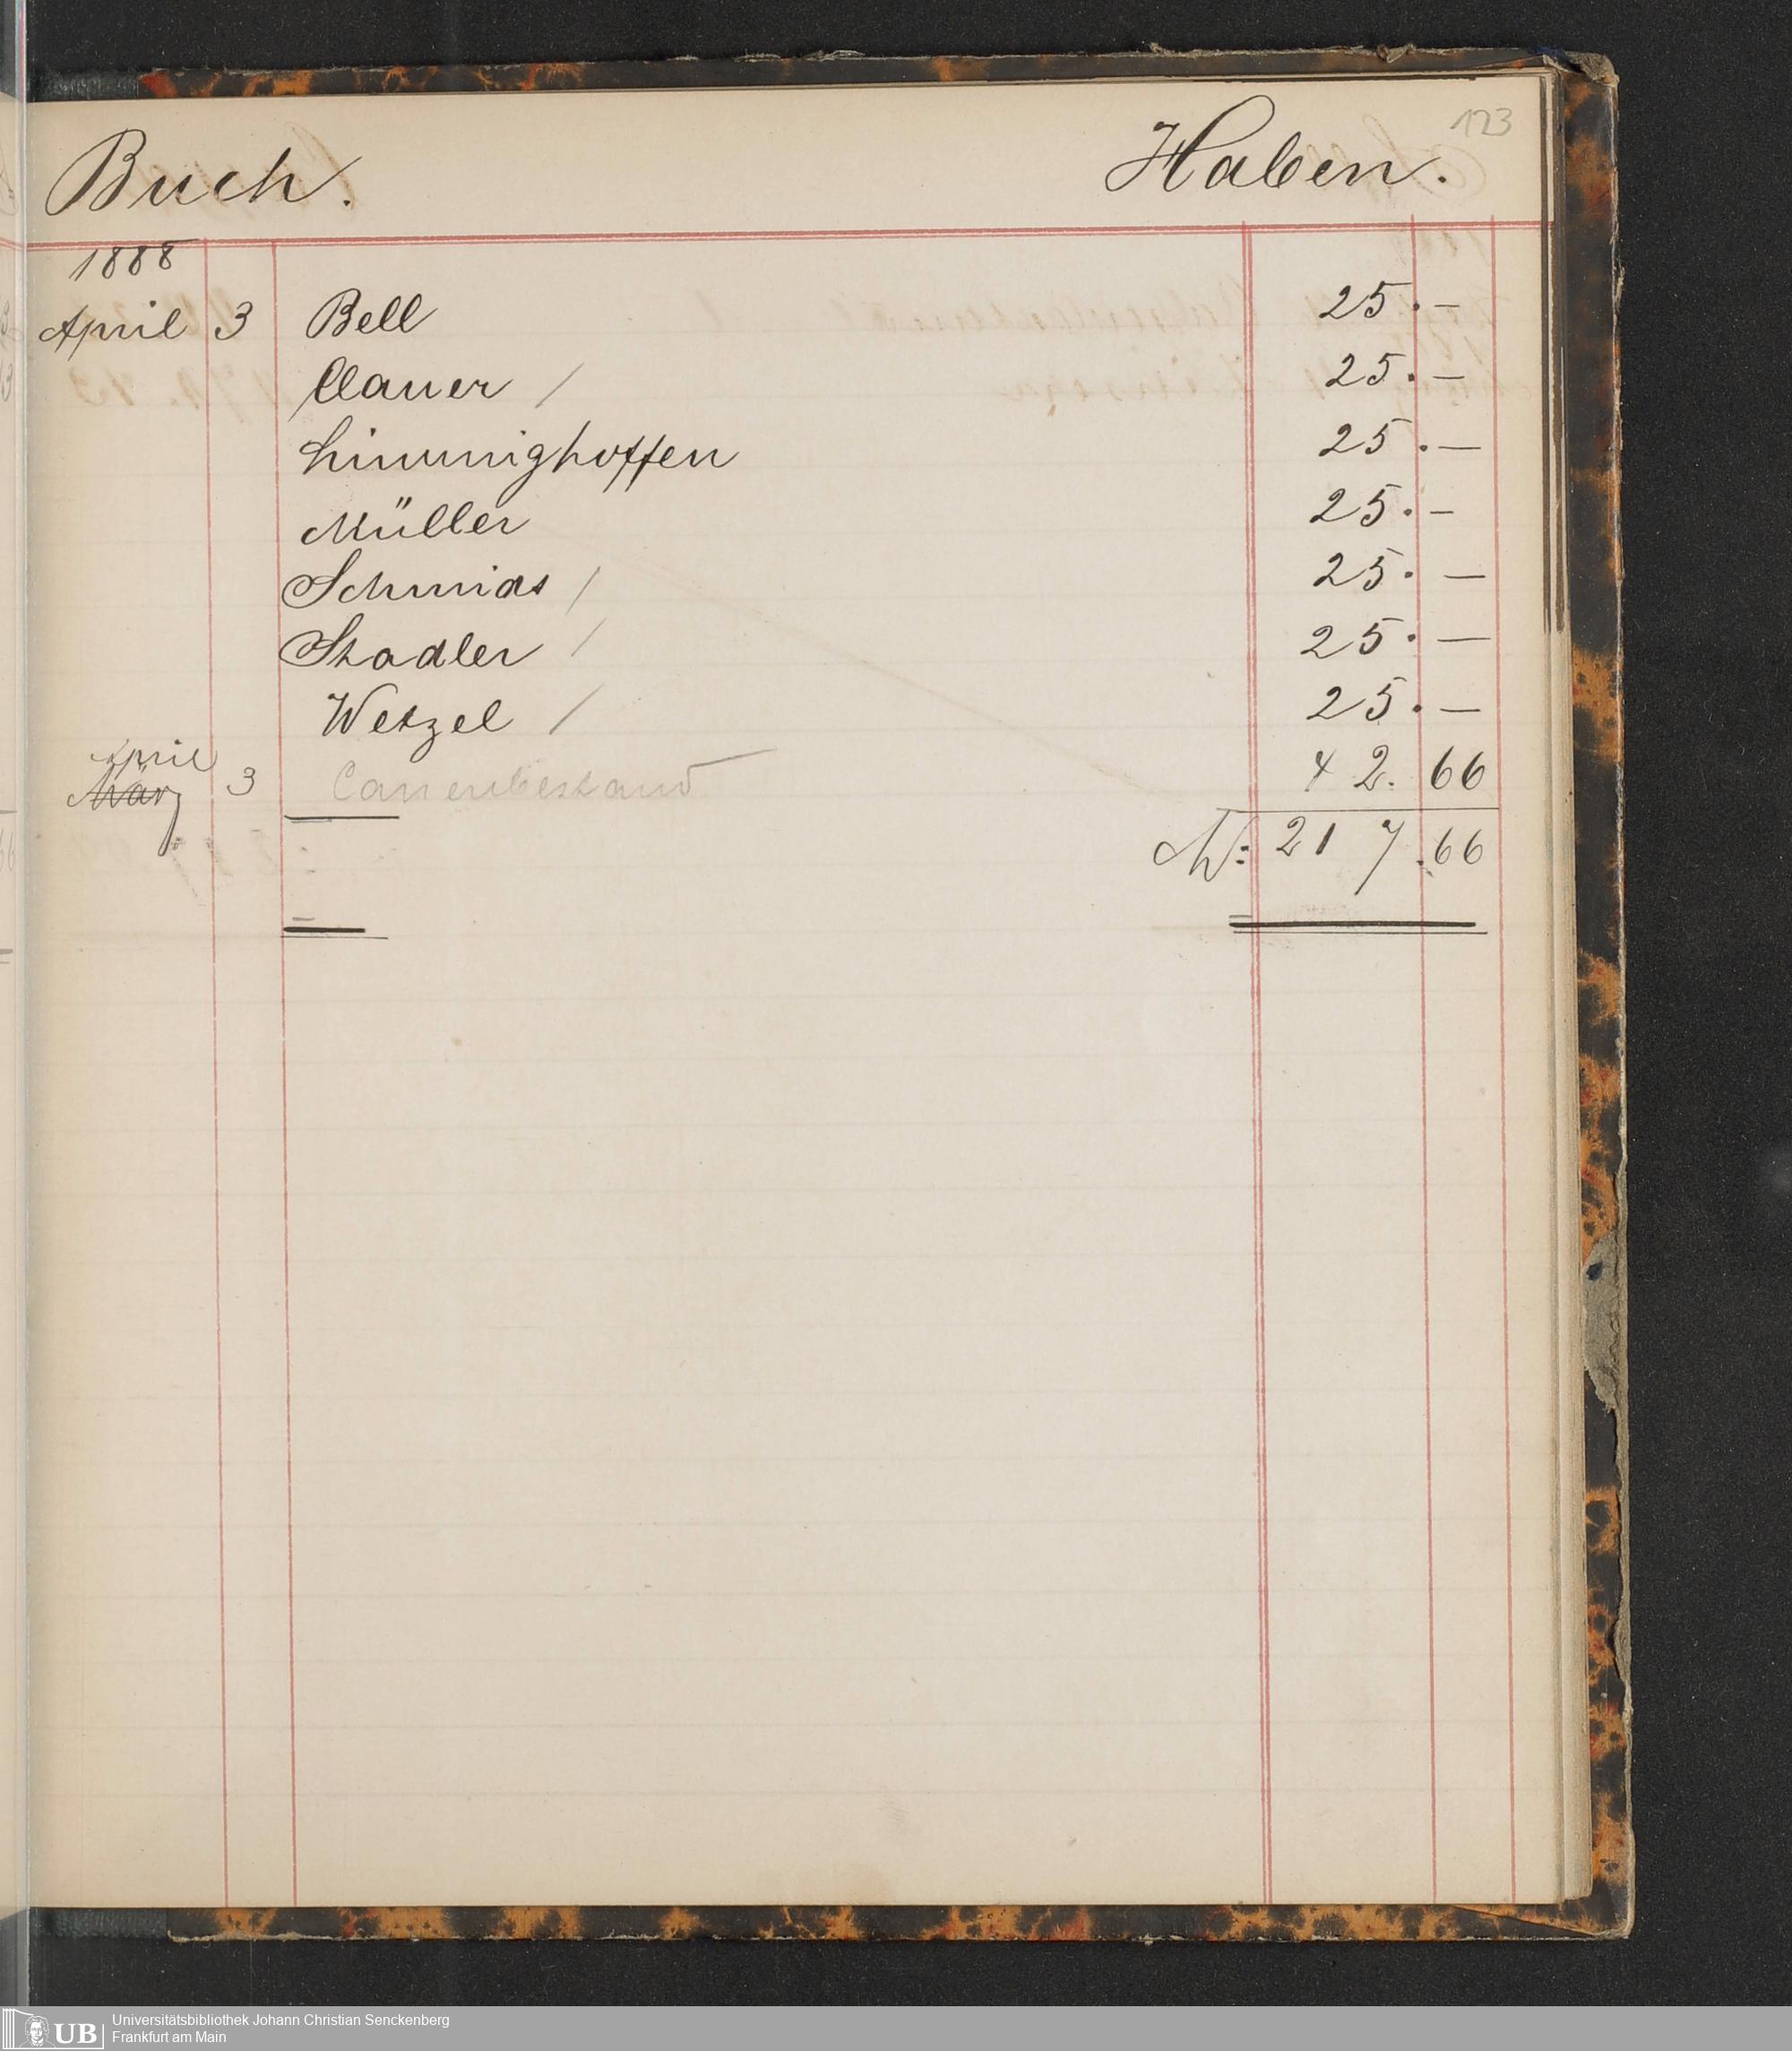 123
Buch. Haben.
1888
April 3 Bell 25.—
Clauer / 25.—
Limmighoffen 25.—
Müller 25.—
Schmidt / 25.—
Stadler / 25.—
Wetzel / 25.—
April
März 3 Cassenbestand 42.66
M: 217.66
UB
Universitätsbibliothek Johann Christian Senckenberg
Frankfurt am Main